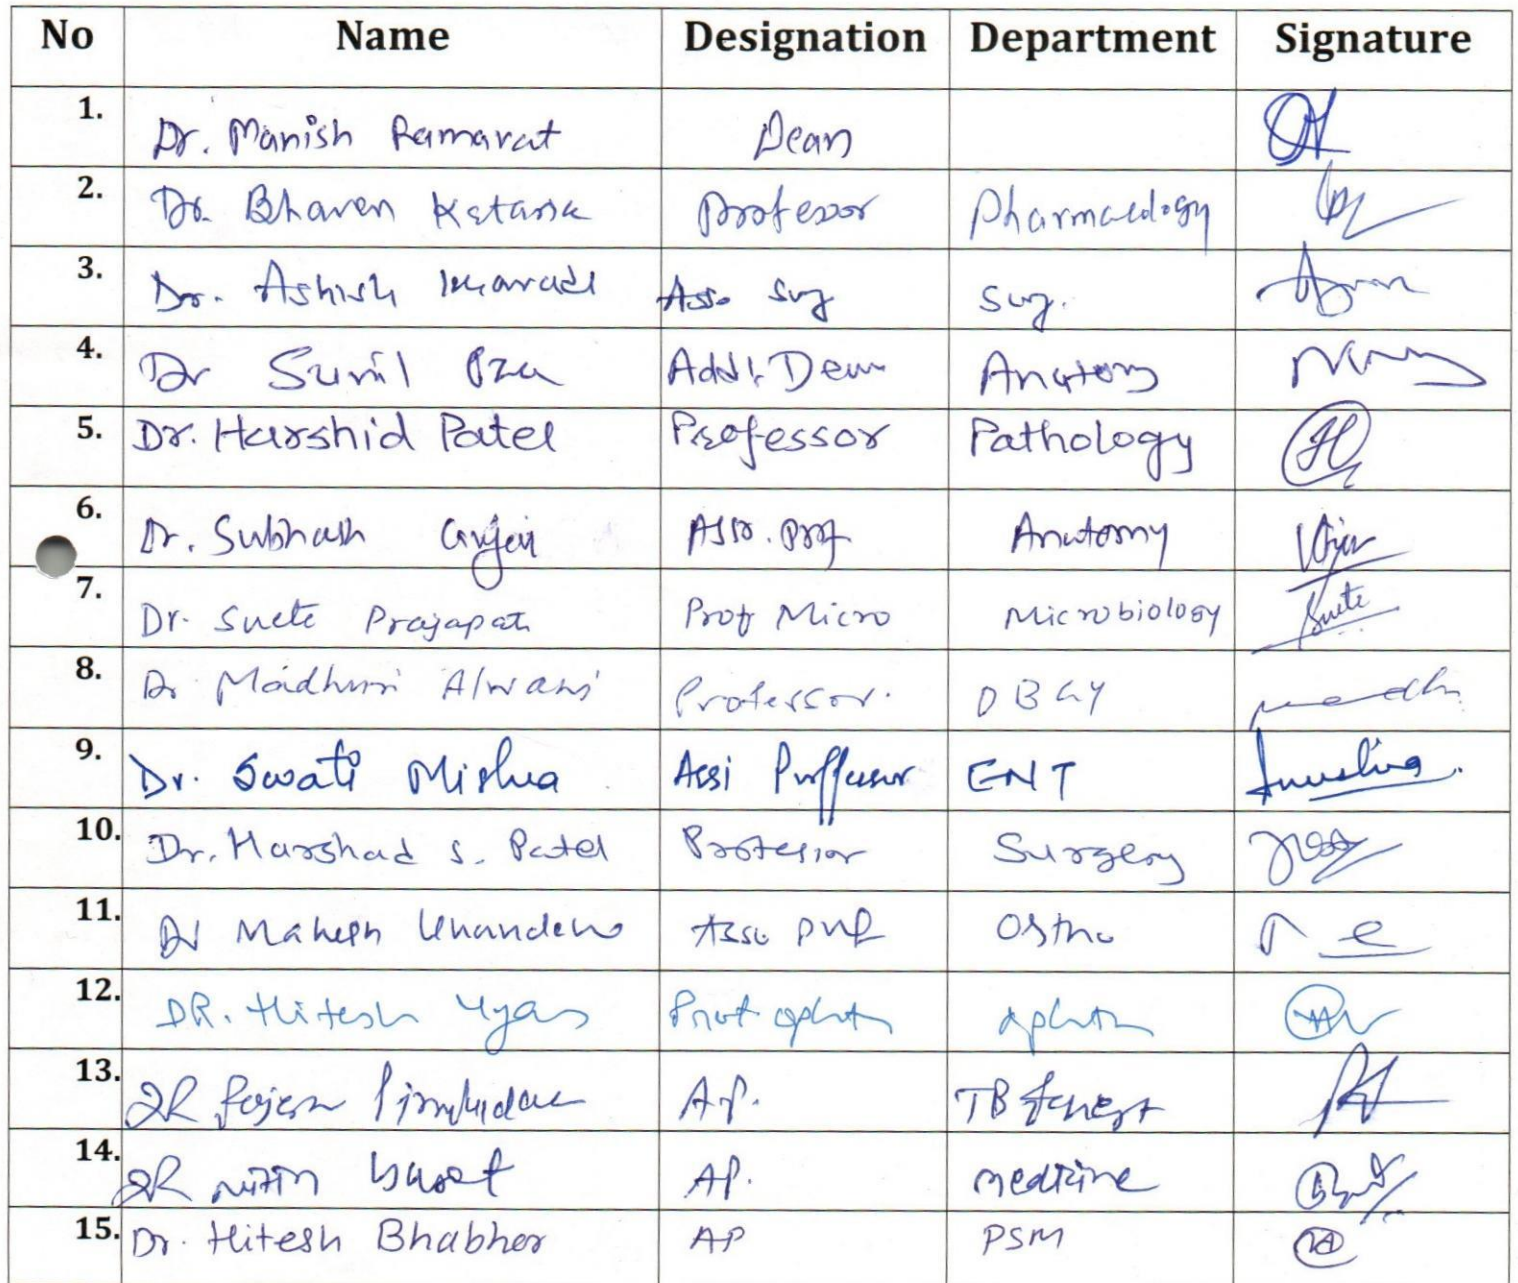 No Name Designation Department Signature
1. Dr. Manish Ramavat Dean
2. Dr. Bhaven Kataria Professor Pharmacology
3. Dr. Ashish Asso Surg Surg.
4. Dr Sunil Addl. Dean Anatomy
5. Dr. Harshid Patel Professor Pathology
6. Dr. Subhash Gujar Asso. Prof Anatomy
7. Dr. Sucte Prajapati Prof Micro Microbiology
8. Dr Madhuri Alwani Professor. OBGY
9. Dr. Swati Mishra Assi Proffessor ENT
10. Dr. Harshad S. Patel Professor Surgery
11. Dr Mahesh Asso Prof Ortho
12. DR. Hitesh Prof Ophth Ophth
13. DR Rajesh A.P. TB &
14. DR Nitin AP. Medicine
15. Dr. Hitesh Bhabhor AP PSM